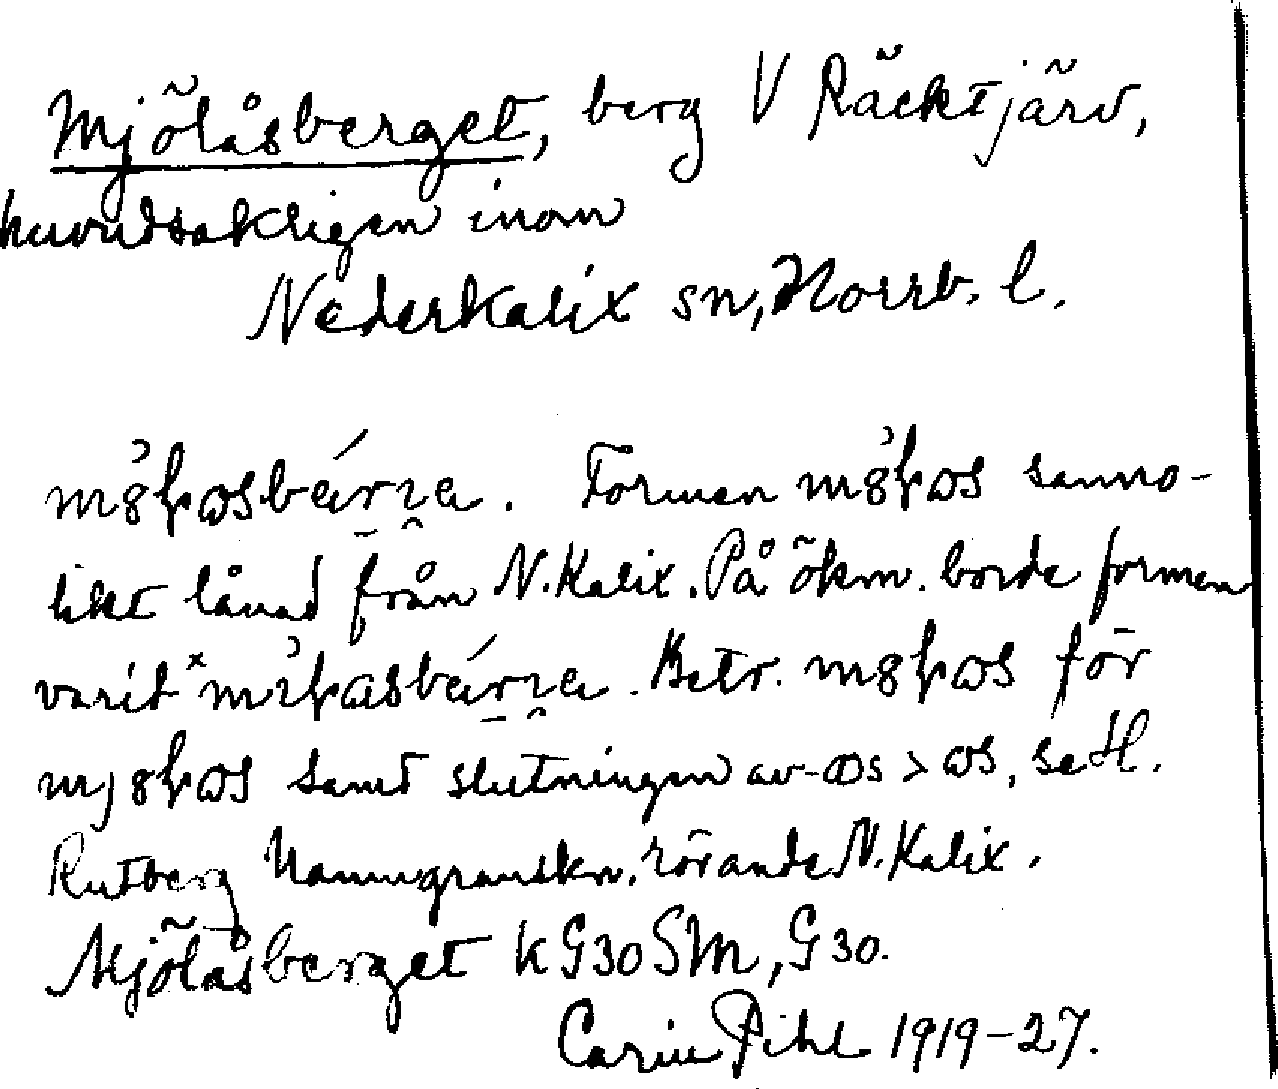 Mjölåsberget, berg V Räcktjärv,
huvudsakligen inom
Nederkalix sn, Norrb. l.
Formen sanno-
likt lånad från N. Kalix. På ökm. borde formen
varit Betr. för
samt slutningen av > se H.
Rutberg Namngranskn. rörande N. Kalix.
Mjölåsberget k G30 SM, G 30.
Carin Pihl 1919-27.